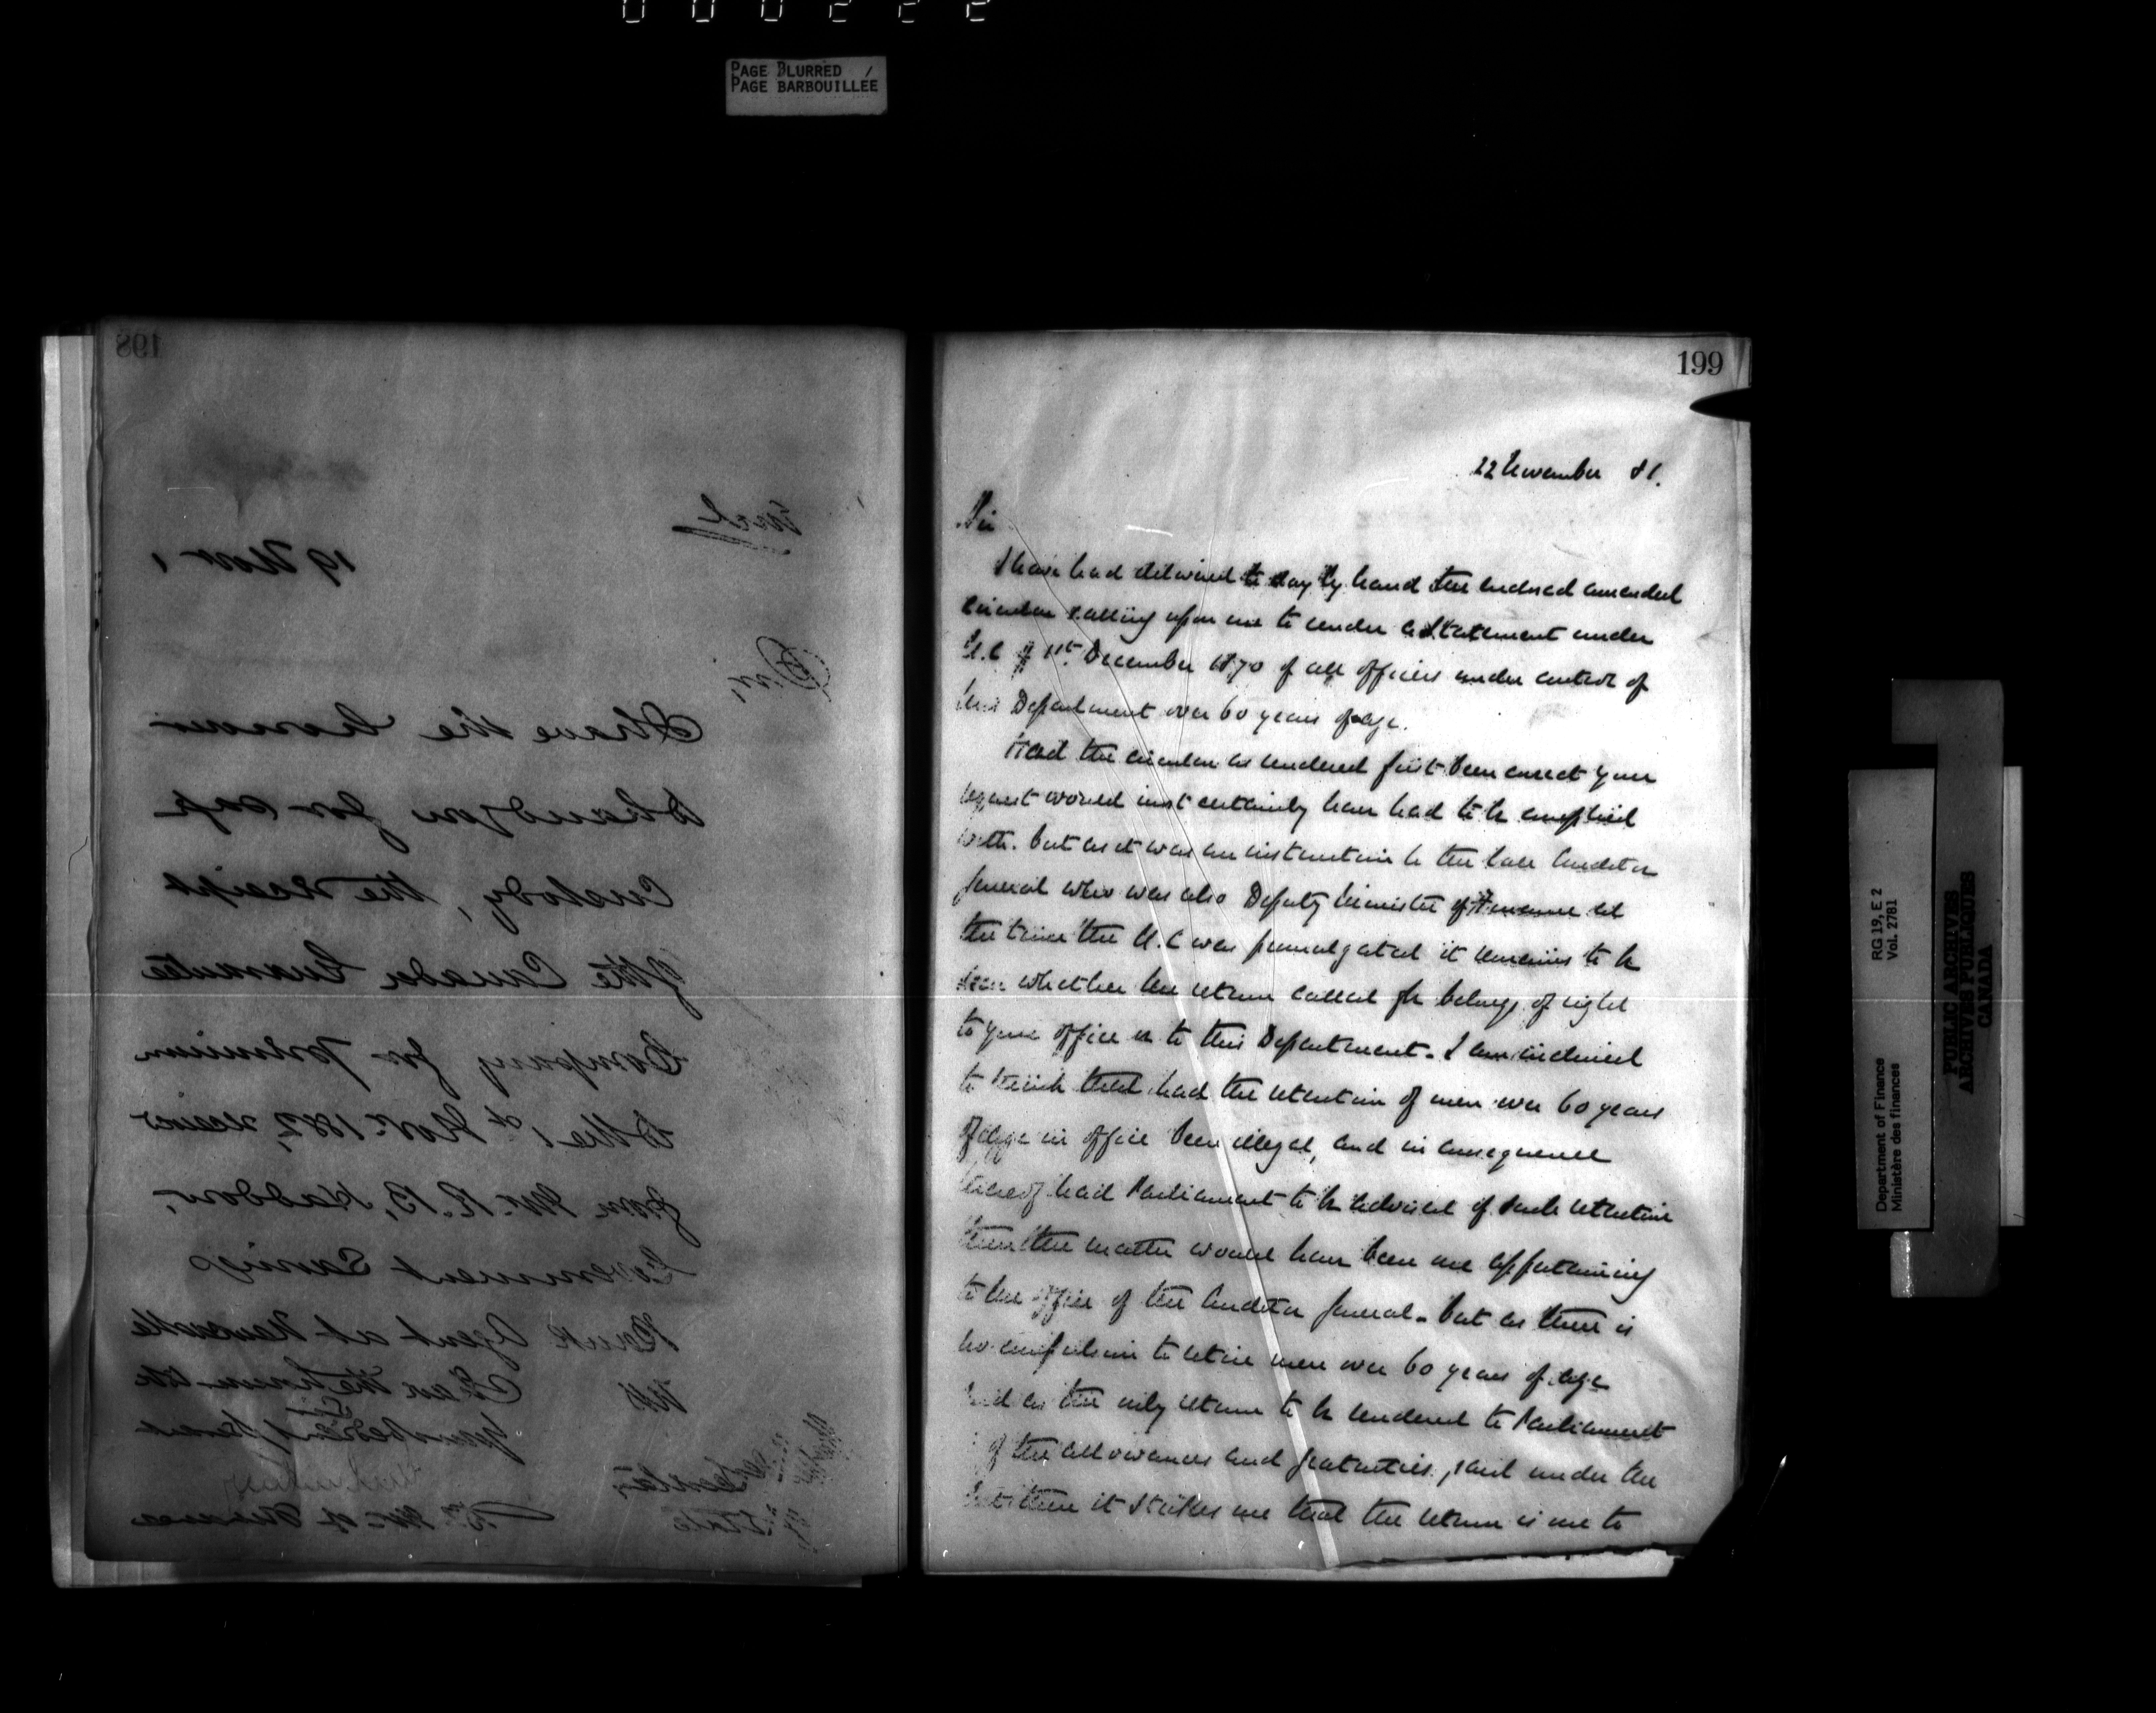 000222
PAGE BLURRED
PAGE BARBOUILLÉE
198
19 Nov 1
Encl
Sir,
I have the honour
to hand you for safe
Custody, the receipt
of the Canada Guarantee
Company for premium
to the 1st Nov. 1882, received
from Mr. R. B. Haddow,
Government Savings
Bank Agent at Newcastle
NB
199
22 November 81.
Sir
I have had delivered to day by hand the enclosed amended
circular calling upon me to render a Statement under
O.C of 1st December 1870 of all officers under control of
this Department over 60 years of age.
Had the circular as rendered first been correct your
request would most certainly have had to be complied
with. but as it was an instruction to the late Auditor
General who was also Deputy Minister of Finance at
the time the O.C was promulgated it remains to be
seen whether the return called for belongs of right
to your office or to this Department. I am inclined
to think that had the retention of men over 60 years
of age in office been illegal, and in consequence
thereof had Parliament to be advised of such retention
then the matter would have been one appertaining
to the office of the Auditor General. but as there is
no compulsion to retire men over 60 years of age
and as the only return to be rendered to Parliament
of the allowances and gratuities, paid under the
it strikes me that the return is one to
RG 19, E 2
Vol. 2781
Department of Finance
Ministère des finances
PUBLIC ARCHIVES
ARCHIVES PUBLIQUES
CANADA